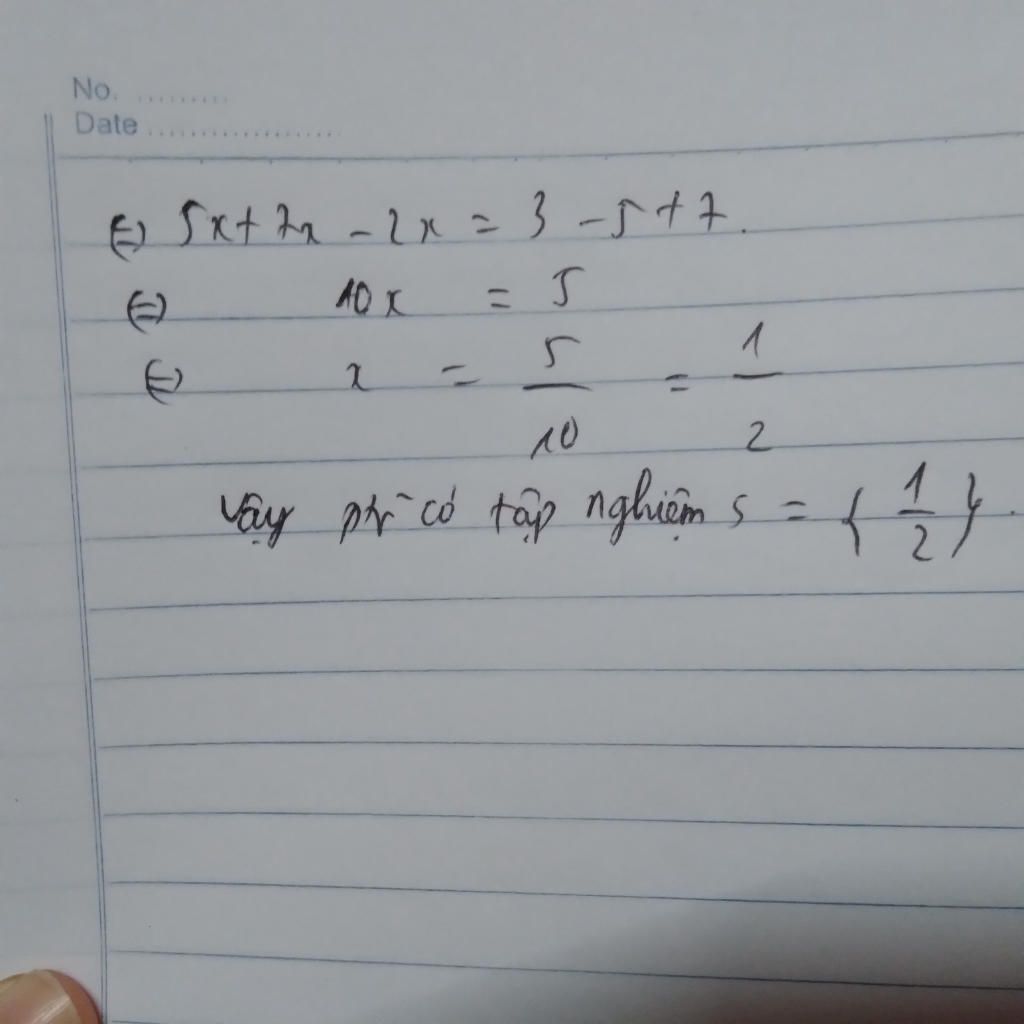 No. .........
Date ..................
⇔ 5x + 7x - 2x = 3 - 5 + 7.
⇔ 10x = 5
⇔ x = 5/10 = 1/2
Vậy ptr có tập nghiệm S = { 1/2 }.